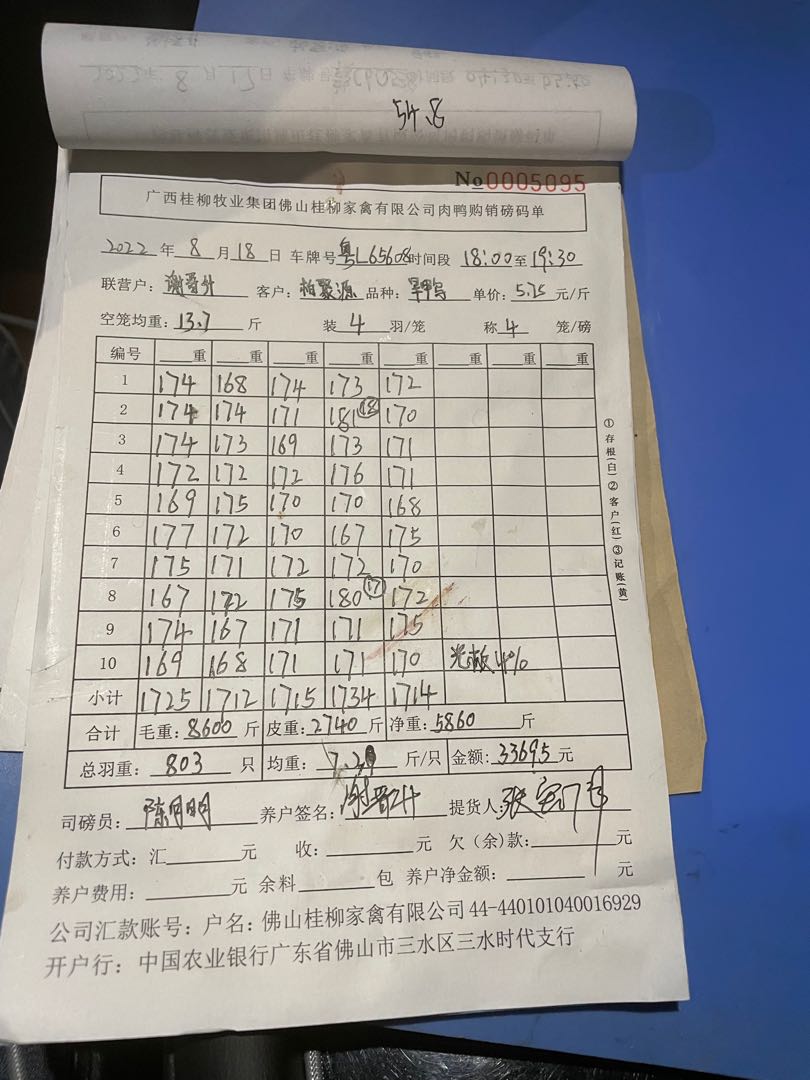 54.8
No 0005095
广西桂柳牧业集团佛山桂柳家禽有限公司肉鸭购销磅码单
2022 年 8 月 18 日 车牌号 粤L65608 时间段 18:00 至 19:30
联营户: 客户: 柏聚源 品种: 单价: 5.75 元/斤
空笼均重: 13.7 斤 装 4 羽/笼 称 4 笼/磅
编号 重 重 重 重 重 重 重 重
1 174 168 174 173 172
2 174 174 171 181 18 170
3 174 173 169 173 171
4 172 172 172 176 171
5 169 175 170 170 168
6 177 172 170 167 175
7 175 171 172 172 170
8 167 172 175 180 17 172
9 174 167 171 171 175
10 169 168 171 171 170 4%
小计 1725 1712 1715 1734 1714
合计 毛重: 8600 斤 皮重: 2740 斤 净重: 5860 斤
总羽重: 803 只 均重: 斤/只 金额: 33695 元
司磅员: 陈明明 养户签名: 提货人:
付款方式: 汇 元 收: 元 欠(余)款: 元
养户费用: 元 余料 包 养户净金额: 元
公司汇款账号: 户名: 佛山桂柳家禽有限公司 44-440101040016929
开户行: 中国农业银行广东省佛山市三水区三水时代支行
①存根(白)②客户(红)③记账(黄)